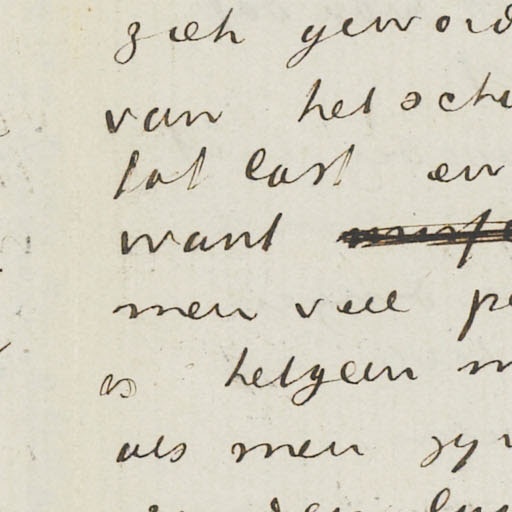 zich geword
van het sch
tot last en
want
men veel p
is hetgeen m
als men zyn